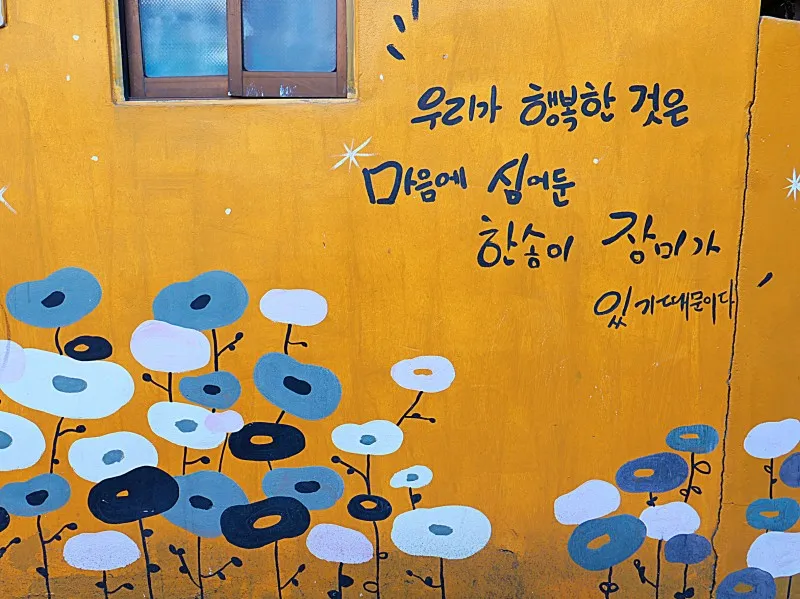 우리가 행복한 것은
마음에 심어둔
한송이 장미가
있기때문이다